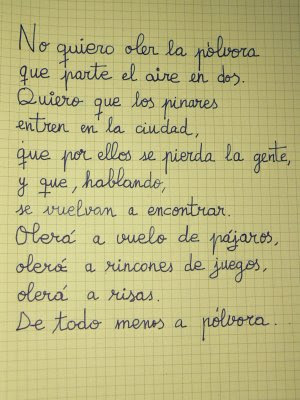 No quiero oler la pólvora
que parte el aire en dos.
Quiero que los pinares
entren en la ciudad,
que por ellos se pierda la gente,
y que, hablando,
se vuelvan a encontrar.
Olerá a vuelo de pájaros,
olerá a rincones de juegos,
olerá a risas.
De todo menos a pólvora.